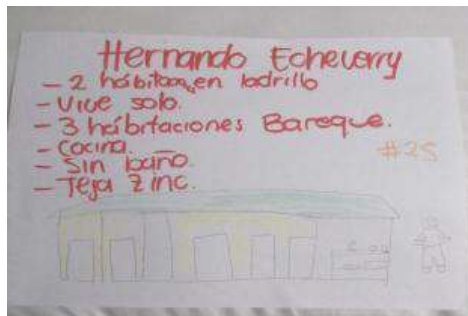 Hernando Echeverry
- 2 habitac en ladrillo
- Vive solo.
- 3 habitaciones Bareque.
- Cocina.
#25
- Sin baño.
- Teja Zinc.